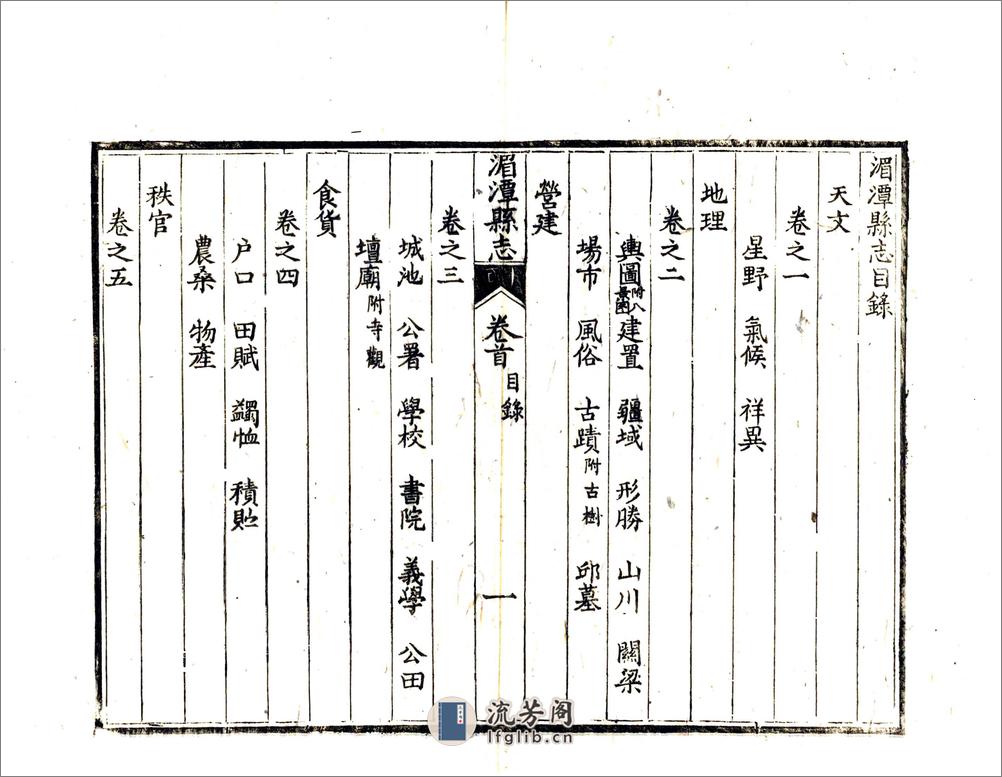 湄潭縣志目錄
天文
卷之一
星野 氣候 祥異
地理
卷之二
輿圖附八景圖 建置 疆域 形勝 山川 關梁
場市 風俗 古蹟附古樹 邱墓
營建
湄潭縣志 卷首 目錄 一
卷之三
城池 公署 學校 書院 義學 公田
壇廟附寺觀
食貨
卷之四
户口 田賦 蠲恤 積貯
農桑 物產
秩官
卷之五
流芳阁
lfglib.cn